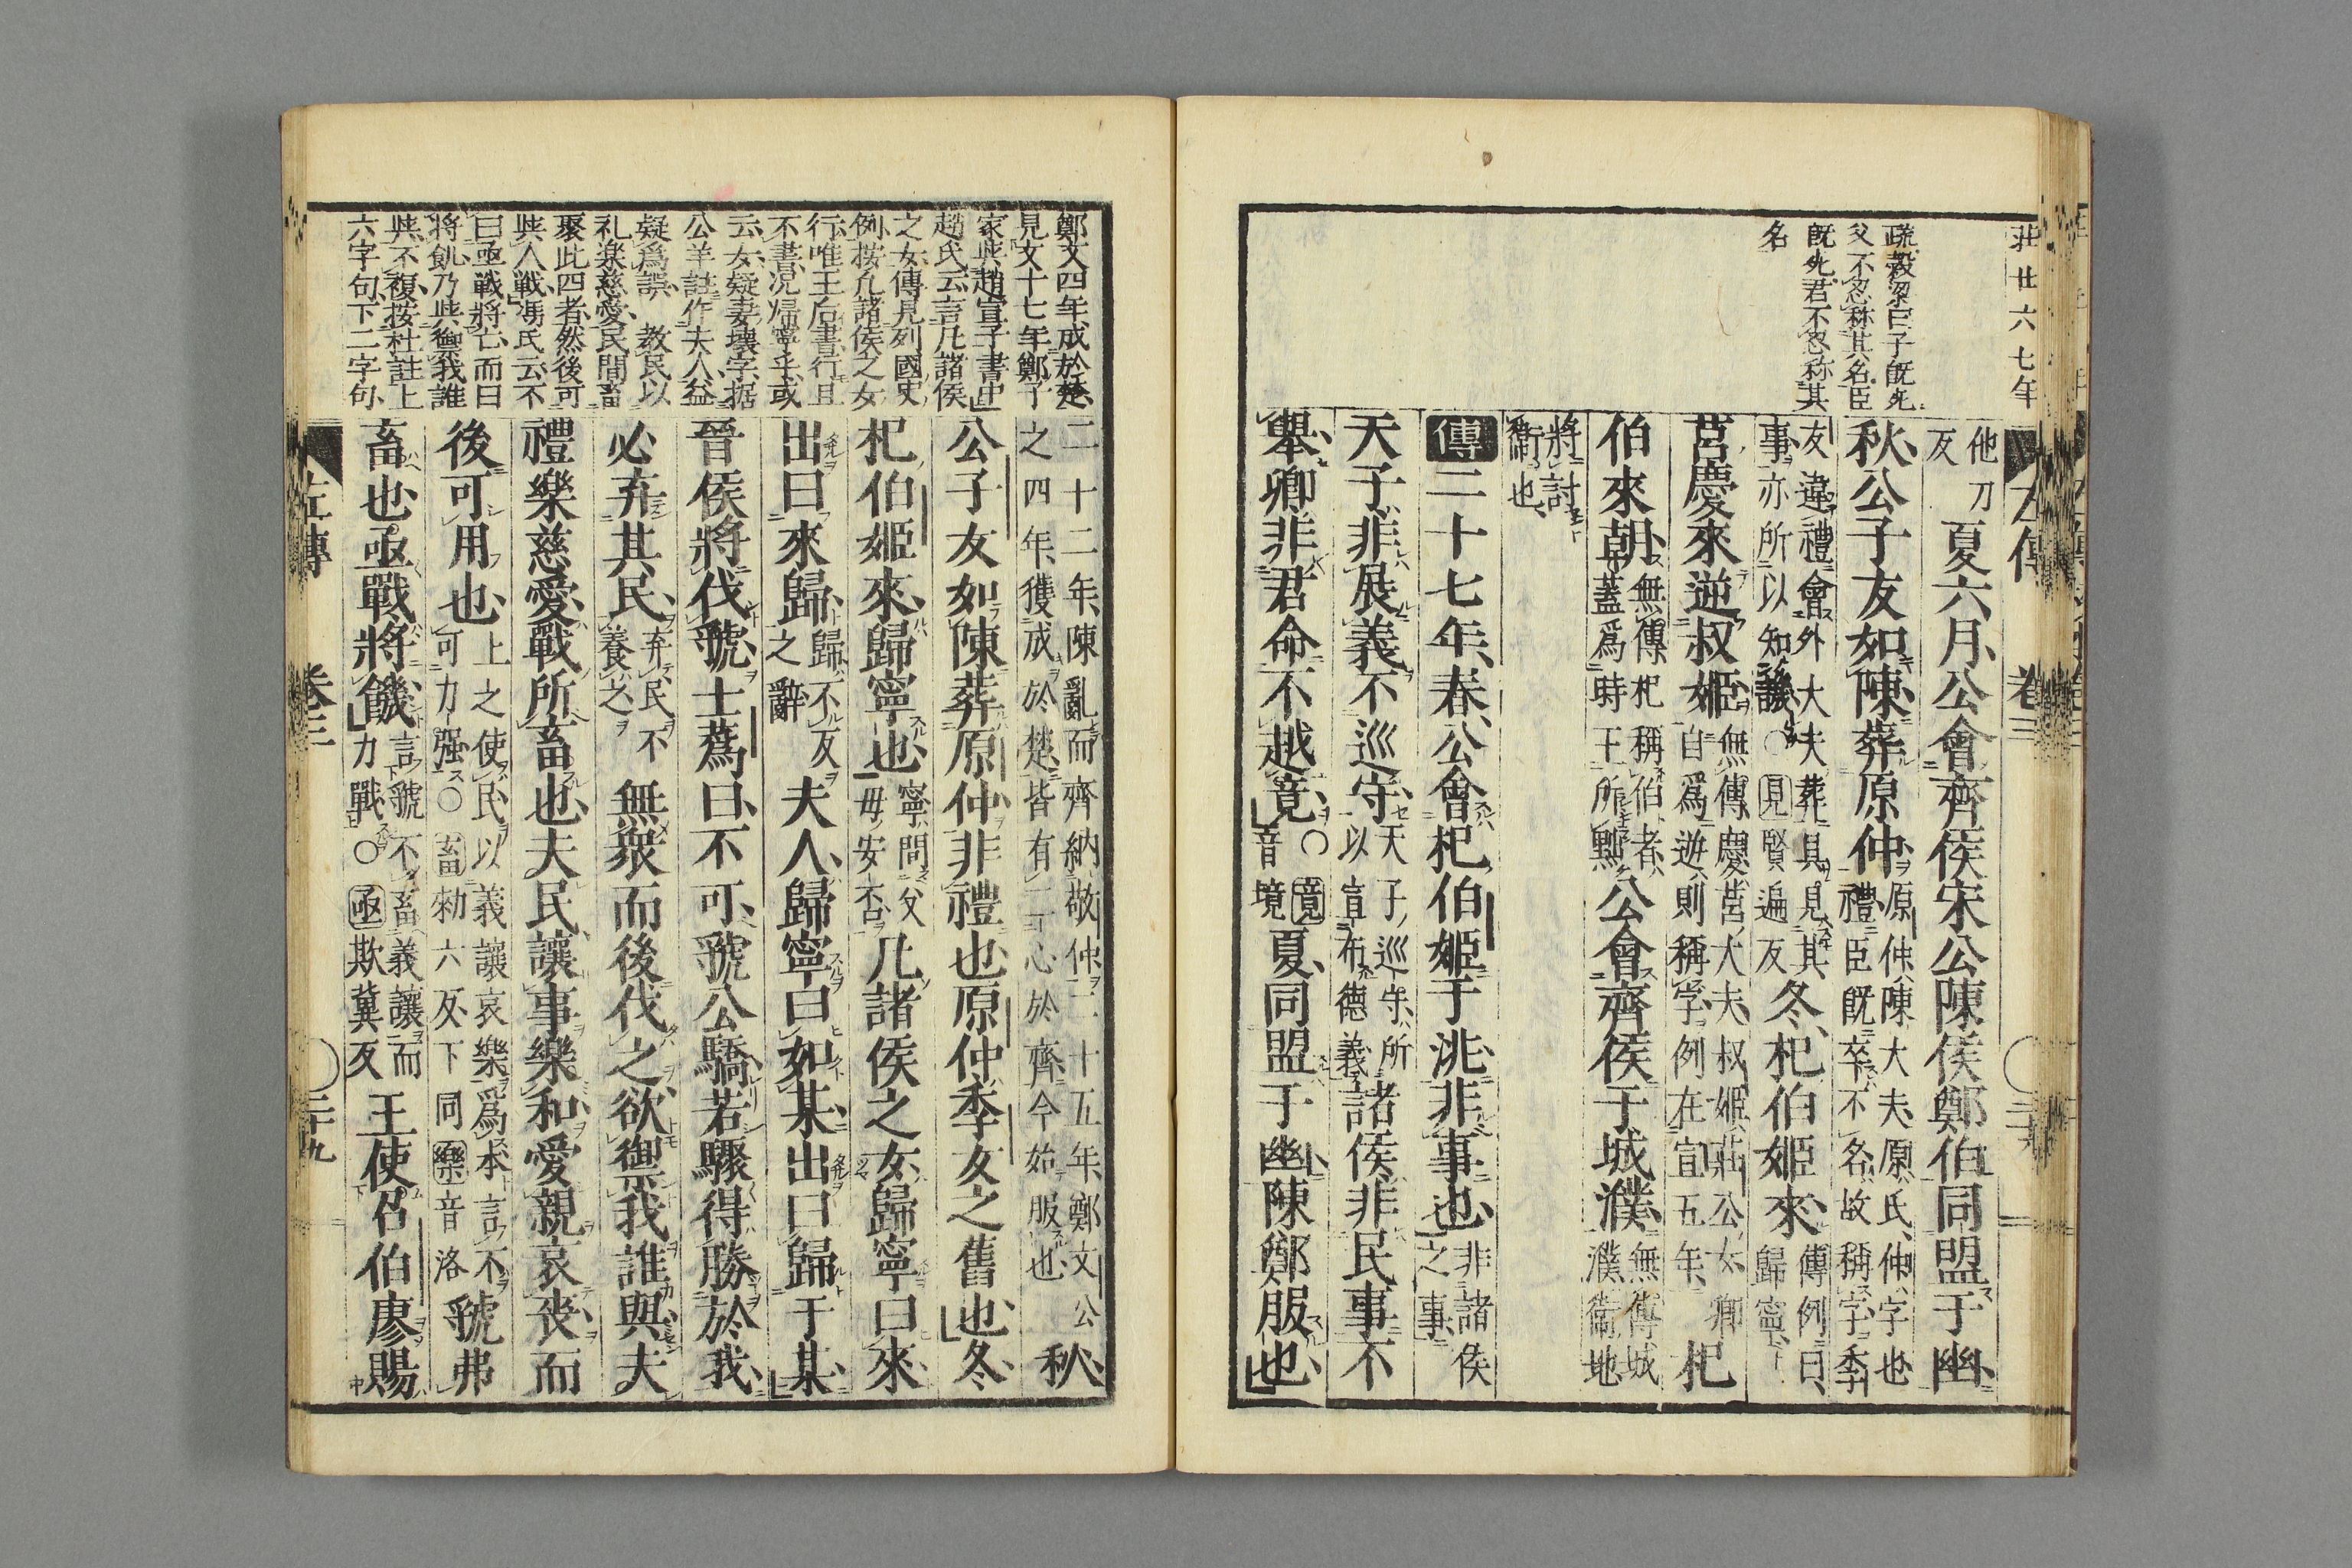 莊廿六七年
疏穀梁曰子既死
父不忍称其名臣
既死君不忍称其
名
左傳 卷三
他刀
反
夏六月公會齊侯宋公陳侯鄭伯同盟于幽
秋公子友如陳葬原仲
原仲陳大夫原氏仲字也
禮臣既卒不名故稱字季
友違禮會外大夫葬具見其
事亦所以知譏○見賢遍反
冬杞伯姬來
傳例曰
歸寧
莒慶來逆叔姬
無傳慶莒大夫叔姬莊公女卿
自爲逆則稱字例在宣五年
杞
伯來朝
無傳杞稱伯者
蓋爲時王所黜
公會齊侯于城濮
無傳城
濮衞地
將討
衞也
傳二十七年春公會杞伯姬于洮非事也
非諸侯
之事
天子非展義不巡守
天子巡守所
以宣布德義
諸侯非民事不
舉卿非君命不越竟
○竟
音境
夏同盟于幽陳鄭服也
鄭文四年成於楚
見文十七年鄭子
家與趙宣子書中
趙氏云言凡諸侯
之女傳見列國史
例按凡諸侯之女
行唯王后書行且
不書况帰寧乎或
云女疑妻壊字据
公羊註作夫人益
疑爲誤 教民以
礼楽慈愛民間畜
聚此四者然後可
與人戰馮氏云不
曰亟戰將亡而曰
將飢乃與禦我誰
與不複按杜註上
六字句下二字句
二十二年陳亂而齊納敬仲二十五年鄭文公
之四年獲成於楚皆有二心於齊今始服也
秋
公子友如陳葬原仲非禮也原仲季友之舊也冬
杞伯姬來歸寧也
寧問父
母安否
凡諸侯之女歸寧曰來
出曰來歸
歸不反
之辭
夫人歸寧曰如某出曰歸于某
晉侯將伐虢士蔿曰不可虢公驕若驟得勝於我
必弃其民
弃民不
養之
無衆而後伐之欲禦我誰與夫
禮樂慈愛戰所畜也夫民讓事樂和愛親哀喪而
後可用也
上之使民以義讓哀樂爲本言不
可力强○畜勑六反下同樂音洛
虢弗
畜也亟戰將饑
言虢不畜義讓而
力戰○亟欺冀反
王使召伯廖賜
左傳 卷三 二十九